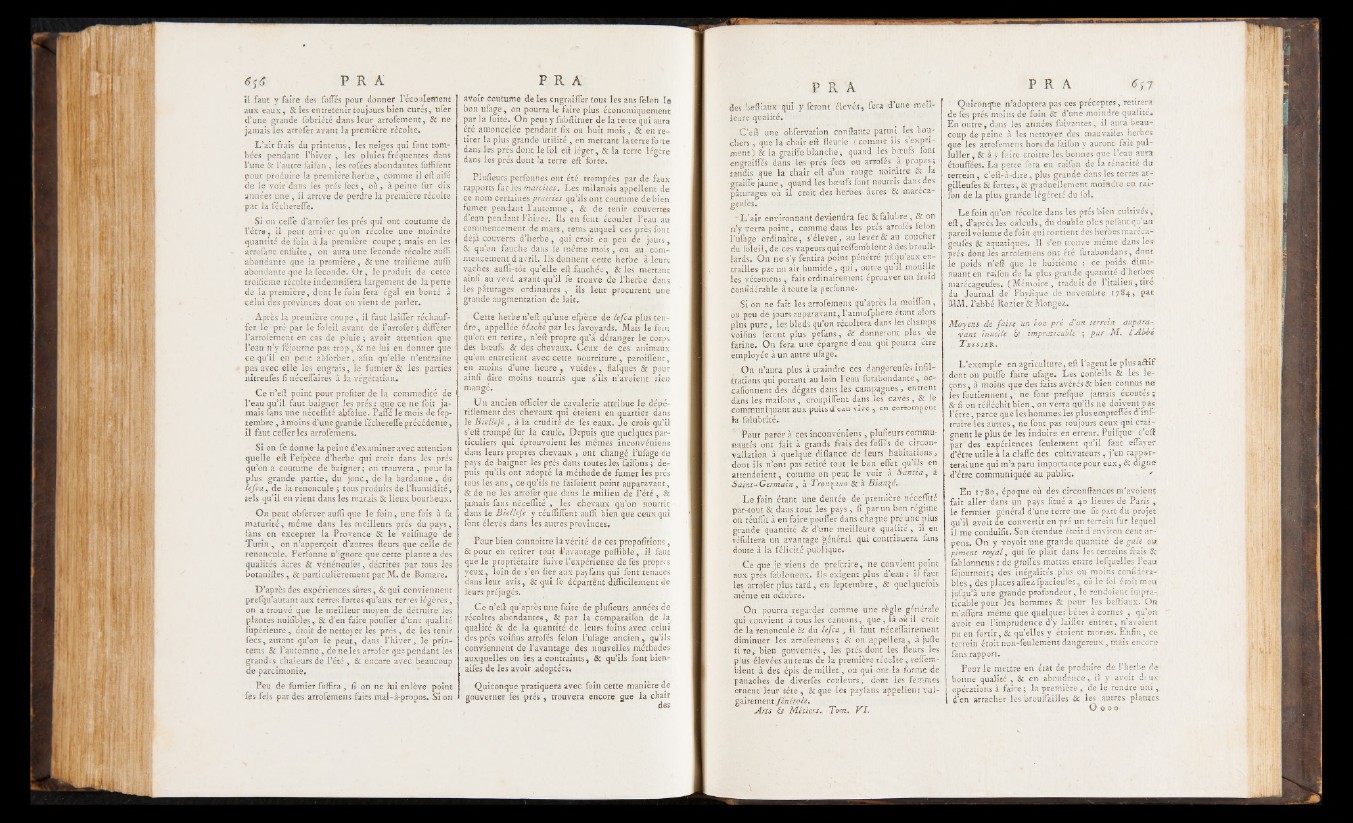 656 P R A
il faut y faire des fossés pour donner l'écoulement
aux eaux, & les entretenir toujours bien curés, user
d'une grande sobriété dans leur arrosement, & ne
jamais les arroser avant la première récolte.
L'air frais du printems, les neiges qui sont tom-
bées pendant l'hiver, les pluies fréquentes dans
l'une & l'autre saison, les rosées abondantes suffisent
pour produire la première herbe, comme il est aisé
de le voir dans les prés secs, où, à peine sur dix
années une, il arrive de perdre la première récolte
par la sécheresse.
Si on cesse d'arroser les prés qui ont coutume de
l'être, il peut arriver qu'on récolte une moindre
quantité de foin à la première coupe ; mais en les
arrosant ensuite, on aura une seconde récolte aussi
abondante que la première, & une troisième aussi
abondante que la seconde. Or, le produit de cette
troisième récolte indemnisera largement de la perte
de la première, dont le foin sera égal en bonté à
celui des provinces dont on vient de parler.
Après la première coupe, il faut laisser réchauf-
fer le pré par le soleil avant de l'arroser ; différer
l'arrosement en cas de pluie ; avoir attention que
l'eau n'y séjourne pas trop, & ne lui en donner que
ce qu'il en peut absorber, afin qu'elle n'entraîne
pas avec elle les engrais, le fumier & les parties
nitreuses si nécessaires à la végétation.
Ce n'est point pour profiter de la commodité de
l'eau qu'il faut baigner les prés : que ce ne soit ja-
mais sans une nécessité absolue. Passé le mois de sep-
tembre, à moins d'une grande sécheresse précédente,
il faut cesser les arrosemens.
Si on se donne la peine d'examiner avec attention
quelle est l'espèce d'herbe qui croit dans les prés
qu'on a coutume de baigner ; on trouvera, pour la
plus grande partie, du jonc, de la bardanne, du
lesca, de la renoncule ; tous produits de l'humidité,
tels qu'il en vient dans les marais & lieux bourbeux.
On peut observer aussi que le foin, une fois à sa
maturité, même dans les meilleurs prés du pays,
sans en excepter la Provence & le voisinage de
Turin, on n'apperçoit d'autres fleurs que celle de
renoncule. Personne n'ignore que cette plante a des
qualités âcres & vénéneuses, décrites par tous les
botanistes, & particulièrement par M. de Bomare.
D'après des expériences sûres, & qui conviennent
presqu'autant aux terres fortes qu'aux terres légères,
on a trouvé que le meilleur moyen de détruire les
plantes nuisibles, & d'en faire pousser d'une qualité
supérieure, étoit de nettoyer les prés, de les tenir
secs, autant qu'on le peut, dans l'hiver, le prin-
tems & l'automne, de ne les arroser que pendant les
grandes chaleurs de l'été, & encore avec beaucoup
de parcimonie.
Peu de fumier suffira, si on ne lui enlève point
ses sels par des arrosemens faits mal-à-propos. Si on
P R A
avoir coutume de les engraisser tous les ans selon le
bon usage, on pourra le faire plus économiquement
par la suite. On peut y substituer de la terre qui aura
été amoncelée pendant six ou huit mois, & en re-
tirer la plus grande utilité, en mettant la terre forte
dans les prés dont le sol est léger, & la terre légère
dans les prés dont la terre est forte.
Plusieurs personnes ont été trompées par de faux
rapports sur les marcites. Les milanois appellent de
ce nom certaines prairies qu'ils ont coutume de bien
fumer pendant l'automne, & de tenir couvertes
d'eau pendant l'hiver. Ils en font écouler l'eau au
commencement de mars, tems auquel ces prés sont
déjà couverts d'herbe, qui croit en peu de jours,
& qu'on fauche dans le même mois, ou au com-
mencement d'avril. Ils donnent cette herbe à leurs
vaches aussi-tôt qu'elle est fauchée, & les mettent
ainsi au verd avant qu'il se trouve de l'herbe dans
les pâturages ordinaires, ils leur procurent une
grande augmentation de lait.
Cette herbe n'est qu'une espèce de lesca plus ten-
dre, appellée blache par les savoyards. Mais le foin
qu'on en retire, n'est propre qu'à déranger le corps
des bœufs & des chevaux. Ceux de ces animaux
qu'on entretient avec cette nourriture, paroissent,
en moins d'une heure, vuides, flasques & pour
ainsi dire moins nourris que s'ils n'avoient rien
mangé.
Un ancien officier de cavalerie attribue le dépé-
rissement des chevaux qui étoient en quartier dans
le Biellese, à la crudité de ses eaux. Je crois qu'il
s'est trompé sur la cause. Depuis que quelques par-
ticuliers qui éprouvoient les mêmes inconvéniens
dans leurs propres chevaux, ont changé l'usage du
pays de baigner les prés dans toutes les saisons ; de-
puis qu'ils ont adopté la méthode de fumer les prés
tous les ans, ce qu'ils ne faisoient point auparavant,
& de ne les arroser que dans le milieu de l'été, &
jamais sans nécessité, les chevaux qu'on nourrit
dans le Biellese y réussissent aussi bien que ceux qui
sont élevés dans les autres provinces.
Pour bien connoitre la vérité de ces propositions,
& pour en retirer tout l'avantage possible, il faut
que le propriétaire suive l'expérience de ses propres
yeux, loin de s'en fier aux paysans qui sont tenaces
dans leur avis, & qui se départent difficilement de
leurs préjugés.
Ce n'est qu'après une suite de plusieurs années de
récoltes abondantes, & par la comparaison de la
qualité & de la quantité de leurs foins avec celui
des prés voisins arrosés selon l'usage ancien, qu'ils
conviennent de l'avantage des nouvelles méthodes
auxquelles on les a contraints, & qu'ils sont bien-
aises de les avoir adoptées.
Quiconque pratiquera avec soin cette manière de
gouverner les prés, trouvera encore que la chair
des
P R A
des bestiaux qui y seront élevés, sera d'une meil-
leure qualité.
C'est une observation constante parmi les bou-
chers, que la chair est fleurie (comme ils s'expri-
ment) & la graisse blanche, quand les bœufs sont
engraissés dans les prés secs ou arrosés à propos ;
tandis que la chair est d'un rouge noirâtre & la
graisse jaune, quand les bœufs sont nourris dans des
pâturages où il croit des herbes âcres & maréca-
geuses.
L'air environnant deviendra sec & salubre, & on
n'y verra point, comme dans les prés arrosés selon
l'usage ordinaire, s'élever, au lever & au coucher
du soleil, de ces vapeurs qui ressemblent à des brouil-
lards. On ne s'y sentira point pénétré jusqu'aux en-
trailles par un air humide, qui, outre qu'il mouille
les vêtemens, fait ordinairement éprouver un froid
considérable à toute la personne.
Si on ne fait les arrosemens qu'après la moisson,
ou peu de jours auparavant, l'atmosphère étant alors
plus pure, les bleds qu'on récoltera dans les champs
voisins seront plus pesans, & donneront plus de
farine. On fera une épargne d'eau qui pourra être
employée à un autre usage.
On n'aura plus à craindre ces dangereuses infil-
trations qui portant au loin l'eau surabondante, oc-
casionnent des dégats dans les campagnes, entrent
dans les maisons, croupissent dans les caves, & se
communiquant aux puits d'eau vive, en corrompent
la salubrité.
Pour parer à ces inconvéniens, plusieurs commu-
nautés ont fait à grands frais des fossés de circon-
vallation à quelque distance de leurs habitations,
dont ils n'ont pas retiré tout le bon effet qu'ils en
attendoient, comme on peut le voir à Santia, à
Saint-Germain, à Tronzano & à Bianzé.
Le foin étant une denrée de première nécessité
par-tout & dans tout les pays, si par un bon régime
on réussit à en faire pousser dans chaque pré une plus
grande quantité & d'une meilleure qualité, il en
résultera un avantage général qui contribuera sans
doute à la félicité publique.
Ce que je viens de prescrire, ne convient point
aux prés sablonneux. Ils exigent plus d'eau ; il faut
les arroser plus tard, en septembre, & quelquefois
même en octobre.
On pourra regarder comme une règle générale
qui convient à tous les cantons, que, là où il croit
de la renoncule & du lesca, il faut nécessairement
diminuer les arrosemens ; & on appellera, à juste
titre, bien gouvernés, les prés dont les fleurs les
plus élevées au tems de la première récolte, ressem-
blent à des épis de millet, ou qui ont la forme de
panaches de diverses couleurs, dont les femmes
ornent leur tête, & que les paysans appellent vul-
gairement fénérole.
Arts & Métiers. Tom. VI.
P R A 657
Quiconque n'adoptera pas ces préceptes, retirera
de ses prés moins de foin & d'une moindre qualité.
En outre, dans les années suivantes, il aura beau-
coup de peine à les nettoyer des mauvaises herbes
que les arrosemens hors de saison y auront fait pul-
luller, & à y faire croitre les bonnes que l'eau aura
étouffées. La perte sera en raison de la ténacité du
terrein, c'est-à-dire, plus grande dans les terres ar-
gilleuses & fortes, & graduellement moindre en rai-
son de la plus grande légèreté du sol.
Le foin qu'on récolte dans les prés bien cultivés,
est, d'après les calculs, du double plus pesant qu'un
pareil volume de foin qui contient des herbes maréca-
geuses & aquatiques. Il s'en trouve même dans les
prés dont les arrosemens ont été surabondans, dont
le poids n'est que le huitième : ce poids dimi-
nuant en raison de la plus grande quantité d'herbes
marécageuses. (Mémoire, traduit de l'italien, tiré
du Journal de Physique de novembre 1784, par
MM. l'abbé Rozier & Mongez.
Moyens de faire un bon pré d'un terrein aupara-
vant inutile & impraticable ; par M. l'Abbé
TESSIER.
L'exemple en agriculture, est l'agent le plus actif
dont on puisse faire usage. Les conseils & les le-
çons, à moins que des faits avérés & bien connus ne
les soutiennent, ne sont presque jamais écoutés ;
& si on réfléchit bien, on verra qu'ils ne doivent pas
l'être, parce que les hommes les plus empressés d'ins-
truire les autres, ne sont pas toujours ceux qui crai-
gnent le plus de les induire en erreur. Puisque c'est
par des expériences seulement qu'il faut essayer
d'être utile à la classe des cultivateurs, j'en rappor-
terai une qui m'a paru importante pour eux, & digne
d'être communiquée au public.
En 1780, époque où des circonstances m'avoient
fait aller dans un pays situé à 40 lieues de Paris,
le fermier général d'une terre me fit part du projet
qu'il avoit de convertir en pré un terrein sur lequel
il me conduisit. Son étendue étoit d'environ cent ar-
pens. On y voyoit une grande quantité de gale ou
piment royal, qui se plait dans les terreins frais &
sablonneux : de grosses mottes entre lesquelles l'eau
séjournoit ; des inégalités plus ou moins considéra-
bles, des places assez spacieuses, où le sol étoit mou
jusqu'à une grande profondeur, le rendoient impra-
ticable pour les hommes & pour les bestiaux. On
m'assura même que quelques bêtes à cornes, qu'on
avoit eu l'imprudence d'y laisser entrer, n'avoient
pu en sortir, & qu'elles y étoient mortes. Enfin, ce
terrein étoit non-seulement dangereux, mais encore
sans rapport.
Pour le mettre en état de produire de l'herbe de
bonne qualité, & en abondance, il y avoit deux
opérations à faire ; la première, de le rendre uni,
d'en arracher les broussailles & les autres plantes
O o o o